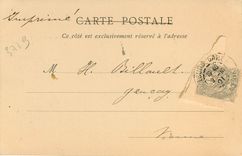 Imprimé
CARTE POSTALE
Ce côté est exclusivement réservé à l'adresse
M. H. Billault
Gençay
Vienne